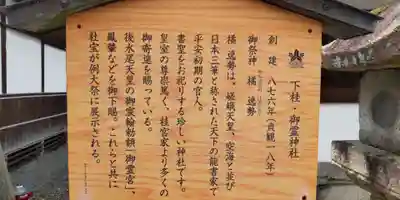 下桂 御霊神社
創建 八七六年(貞観一八年)
御祭神 橘 逸勢
橘 逸勢は、嵯峨天皇、空海と並び
日本三筆と称された天下の能書家で
平安初期の官人。
書聖をお祀りする珍しい神社です。
皇室の尊崇篤く、桂宮家より多くの
御寄進を賜っている。
後水尾天皇の御宸翰勅額「御霊宮」、
鳳輦などを御下賜。これらと共に
社宝が例大祭に展示される。